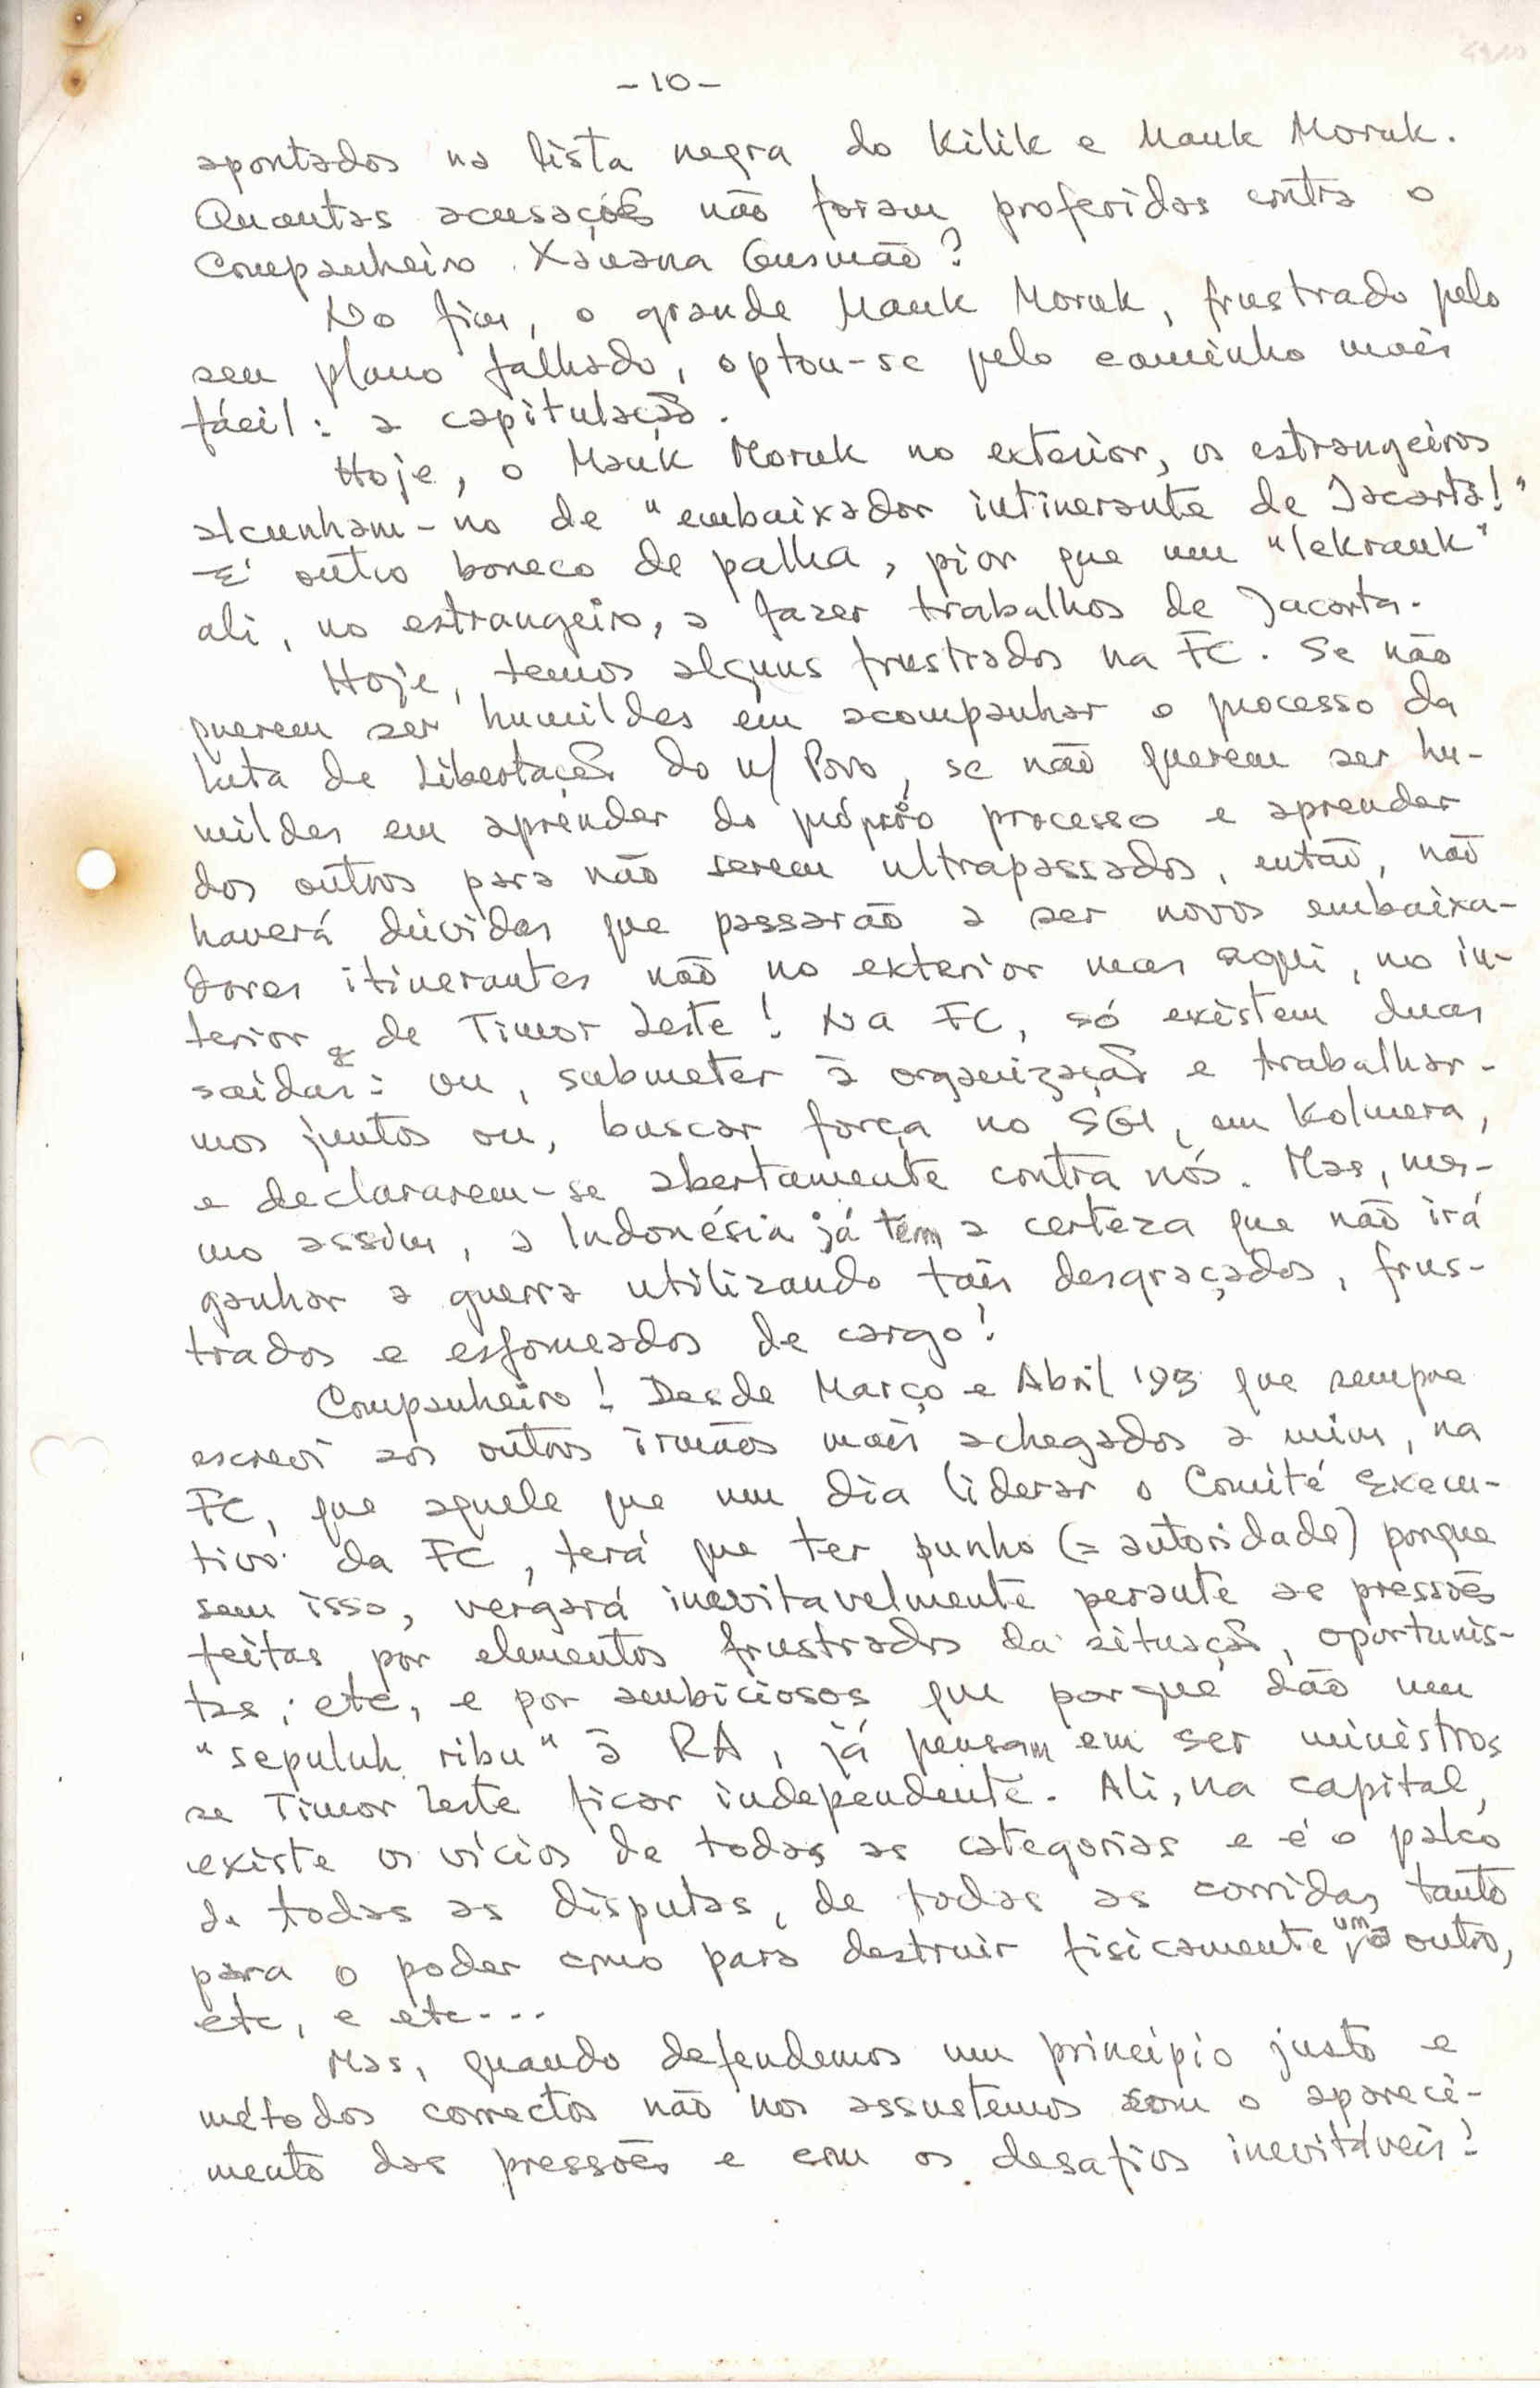 -10-
apontados na lista negra do Kilik e Mauk Moruk.
Quantas acusações não foram proferidas contra o
Companheiro Xanana Gusmão?
No fim, o grande Mauk Moruk, frustrado pelo
seu plano falhado, optou-se pelo caminho mais
fácil: a capitulação.
Hoje, o Mauk Moruk no exterior, os estrangeiros
alcunham-no de "embaixador intinerante de Jacarta!"
É outro boneco de palha, pior que um "lekrauk"
ali, no estrangeiro, a fazer trabalhos de Jacarta.
Hoje, temos alguns frustrados na FC. Se não
querem ser humildes em acompanhar o processo da
luta de Libertação do n/ Povo, se não querem ser hu-
mildes em aprender do próprio processo e aprender
dos outros para não serem ultrapassados, então, não
haverá dúvidas que passarão a ser novos embaixa-
dores itinerantes não no exterior mas aqui, no in-
terior de Timor Leste! Na FC, só existem duas
saídas: ou, submeter à organização e trabalhar-
mos juntos ou, buscar força no SGI, em Kolmera,
e declararem-se abertamente contra nós. Mas, mes-
mo assim, a Indonésia já tem a certeza que não irá
ganhar a guerra utilizando tais desgraçados, frus-
trados e esfomeados de cargo!
Companheiro! Desde Março e Abril '93 que sempre
escrevi aos outros irmãos mais achegados a mim, na
FC, que aquele que um dia liderar o Comité Execu-
tivo da FC, terá que ter punho (= autoridade) porque
sem isso, vergará inevitavelmente perante as pressões
feitas por elementos frustrados da situação, oportunis-
tas, etc, e por ambiciosos que porque dão um
"sepuluh ribu" à RA, já pensam em ser ministros
se Timor Leste ficar independente. Ali, na capital,
existe os vícios de todas as categorias e é o palco
de todas as disputas, de todas as corridas tanto
para o poder como para destruir fisicamente um a outro,
etc, e etc...
Mas, quando defendemos um princípio justo e
métodos correctos não nos assustemos com o apareci-
mento das pressões e com os desafios inevitáveis!